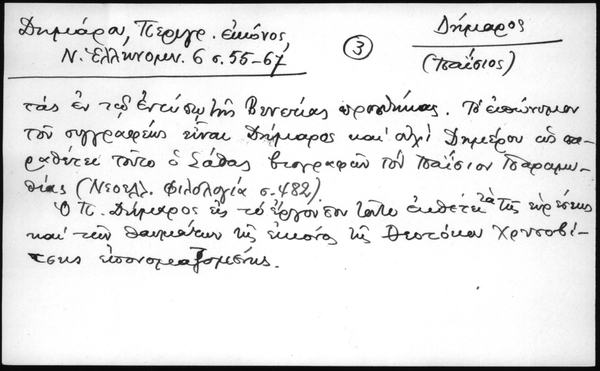 Δημάρου, Περιγρ. εἰκόνος
Ν. Ἑλληνομν. 6 σ. 55-67
3
Δήμαρος
(Παΐσιος)
τὰς ἐν τῷ ἐντύπῳ τῆς Βενετίας προσθήκας. Τὸ ἐπώνυμον
τοῦ συγγραφέως εἶναι Δήμαρος καὶ οὐχὶ Δημάρου ὡς πα-
ραθέτει τοῦτο ὁ Σάθας βιογραφῶν τὸν Παΐσιον Παραμυ-
θίας (Νεοελλ. Φιλολογία σ. 482).
Ὁ Π. Δήμαρος εἰς τὸ ἔργον του τοῦτο ἐκθέτει τὰ τῆς εὑρέσεως
καὶ τῶν θαυμάτων τῆς εἰκόνος τῆς Θεοτόκου Χρυσοβι-
τσης ἐπονομαζομένης.